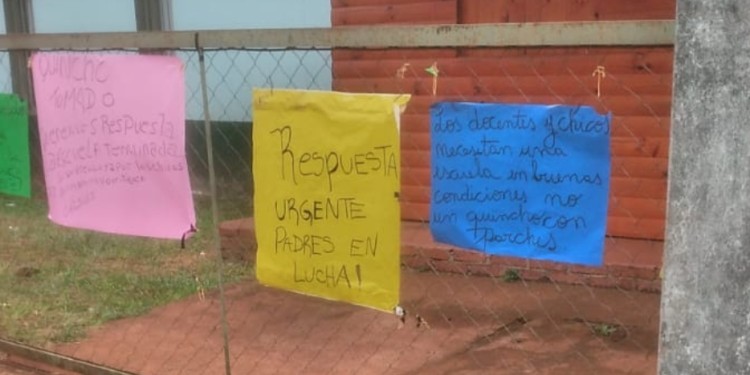 QUINCHO
TOMADO
RESPUESTA
ESCUELA TERMINADA
RESPUESTA
URGENTE
PADRES EN
LUCHA!
Los docentes y chicos
necesitan una
escuela en buenas
condiciones no
un quincho con
parches